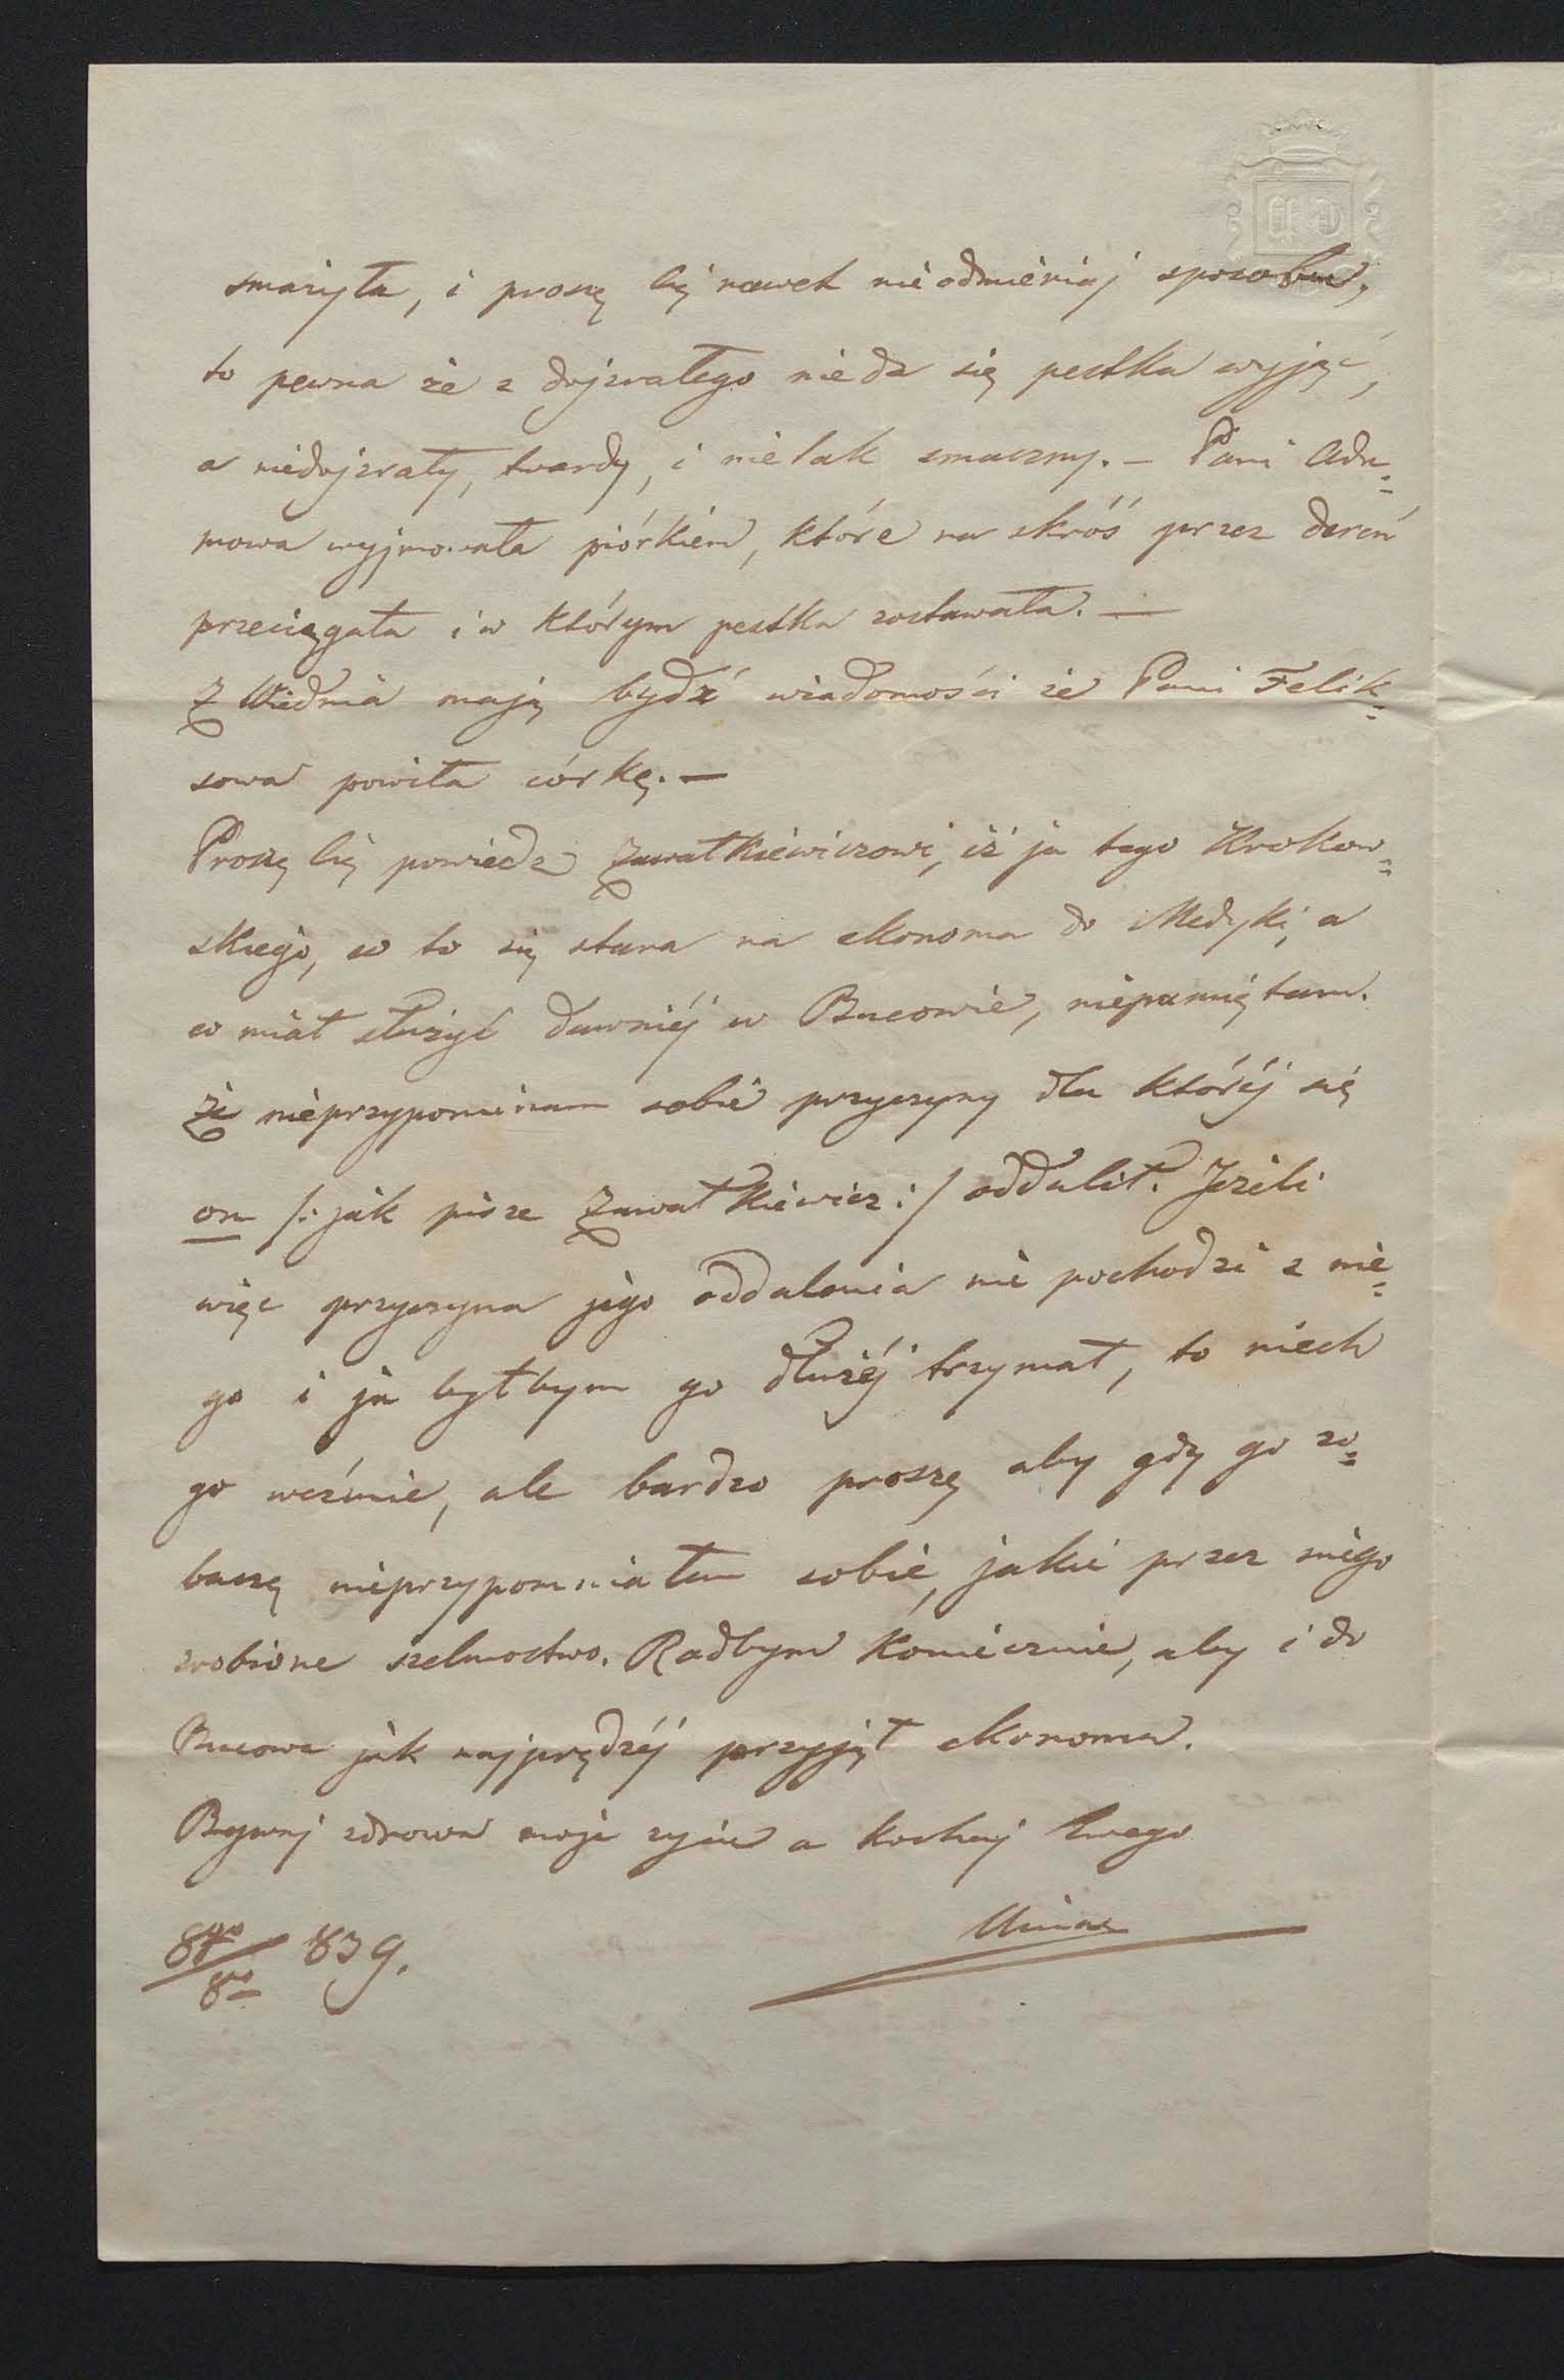 smażyła, i proszę Cię nawet nieodmieniaj sposobu,
to pewna że z dojzrałego nieda się pestka wyjąć,
a niedojzrały, twardy, i nietak smaczny. – Pani Ada=
mowa wyjmowała piórkiem, które na skróś przez dereń
przeciągała i w którym pestka zostawała. —
Z Wiednia mają bydź wiadomości że Pani Felik=
sowa powiła córkę. —
Proszę Cię powiedz Zawałkiewiczowi, iż ja tego Krakow=
skiego, co to się stara na ekonoma do Medyki, a
co miał służyć dawniéj w Bucowie, niepamiętam.
że nieprzypominam sobie przyczyny dla któréj się
on /: jak pisze Zawałkiewicz :/ oddalił. Jeżeli
więc przyczyna jego oddalenia nie pochodzi z nie=
go i ja byłbym go dłużéj trzymał, to niech
go weźmie, ale bardzo proszę aby gdy go zo=
baczę nieprzypomniałem sobie, jakie przez niego
zrobione szelmostwo. Radbym koniecznie, aby i do
Bucowa jak najprędzéj przyjął ekonoma.
Bywaj zdrowa moje życie a kochaj Twego
839.